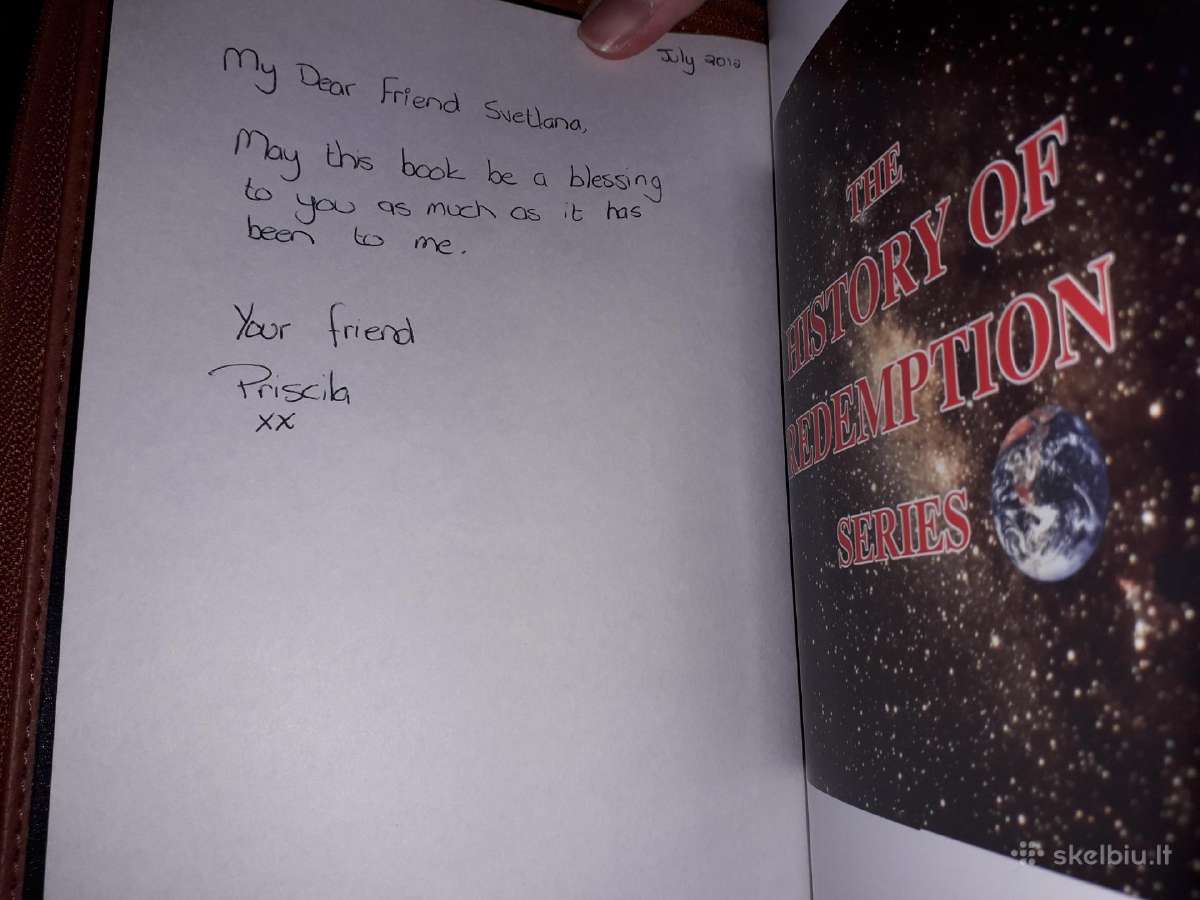 July 2012
My Dear Friend Svetlana,
May this book be a blessing
to you as much as it has
been to me.
Your friend
Priscila
xx
THE
HISTORY OF
REDEMPTION
SERIES
skelbiu.lt